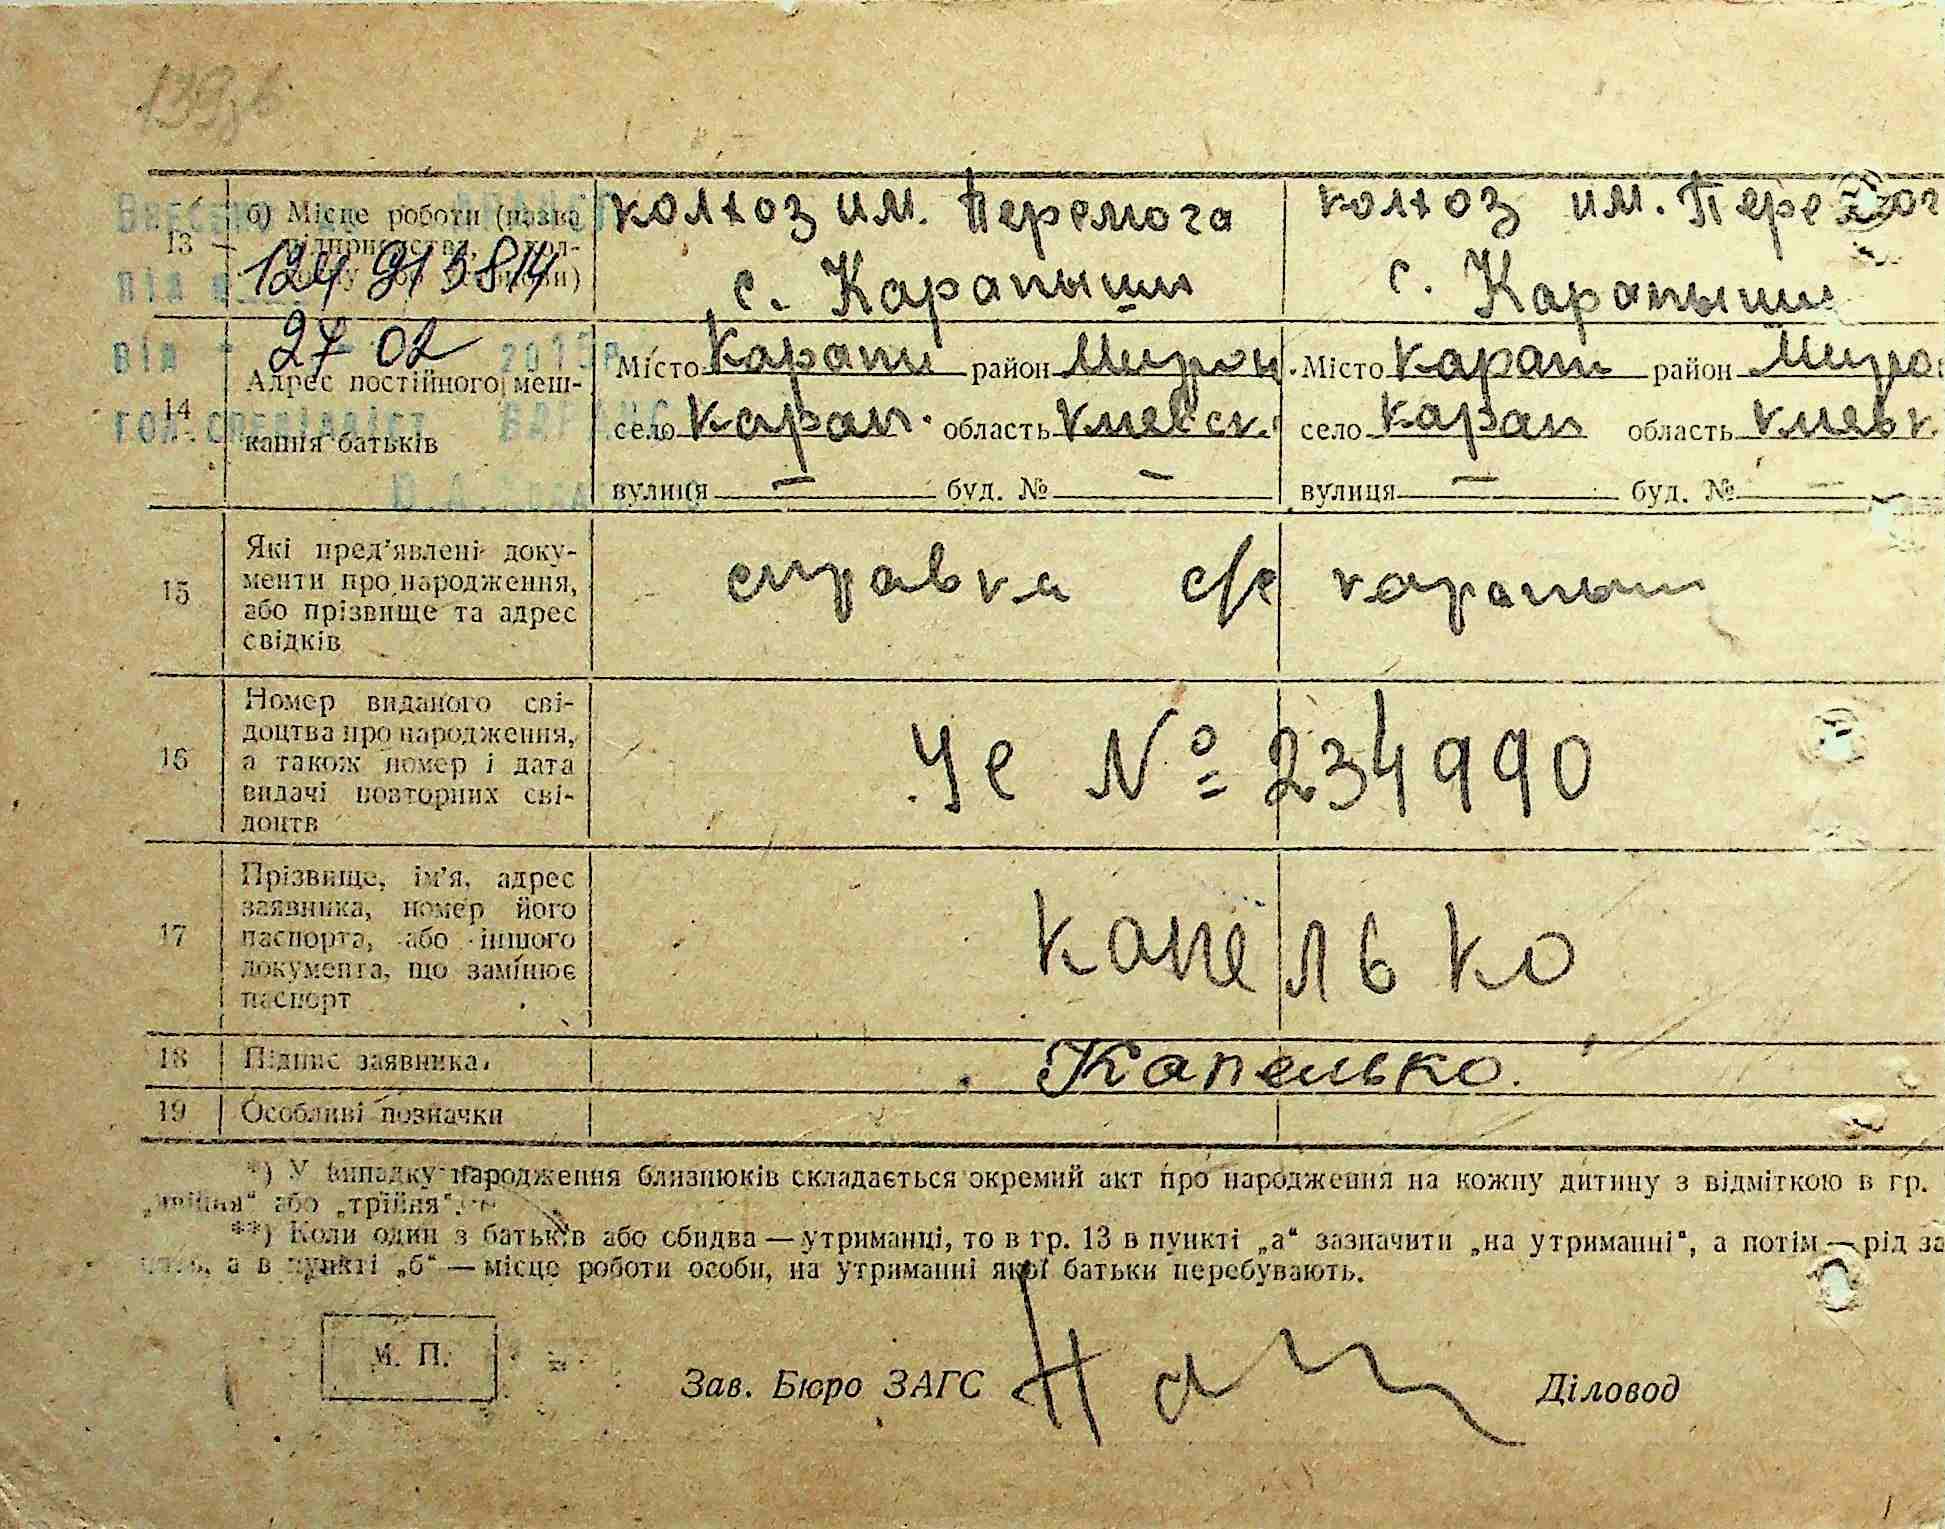 139
13
б) Місце роботи (назва
підприємства, кол-
124 913814
колхоз им. Перемога
с. Карапыши
колхоз им. Перемог
с. Карапыши
27 02
14
Адрес постійного меш-
кання батьків
Місто Карапи район Мирон.
село Карап. область Киевск.
вулиця — буд. № —
Місто Карап район Миро
село Карап область Киевк.
вулиця — буд. №
15
Які пред'явлені доку-
менти про народження,
або прізвище та адрес
свідків
справка с/с карапыши
16
Номер виданого сві-
доцтва про народження,
а також номер і дата
видачі повторних сві-
доцтв
Уе № 234990
17
Прізвище, ім'я, адрес
заявника, номер його
паспорта, або іншого
документа, що замінює
паспорт
Капелько
18
Підпис заявника
Капелько.
19
Особливі позначки
*) У випадку народження близнюків складається окремий акт про народження на кожну дитину з відміткою в гр.
„двійня“ або „трійня“.
**) Коли один з батьків або обидва — утриманці, то в гр. 13 в пункті „а“ зазначити „на утриманні“, а потім — рід за
а в пункті „б“ — місце роботи особи, на утриманні якої батьки перебувають.
М. П.
Зав. Бюро ЗАГС
Діловод